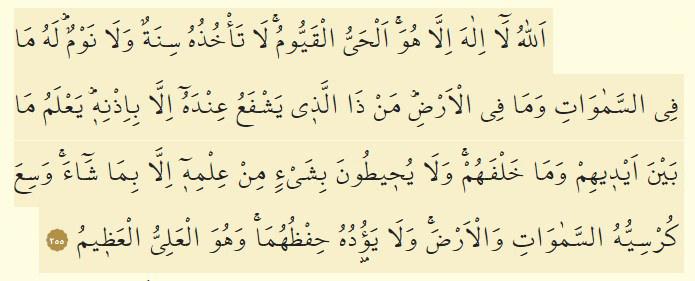 اَللّٰهُ لَٓا اِلٰهَ اِلَّا هُوَۚ اَلْحَيُّ الْقَيُّومُۚ لَا تَأْخُذُهُ سِنَةٌ وَلَا نَوْمٌۜ لَهُ مَا
فِي السَّمٰوَاتِ وَمَا فِي الْاَرْضِۜ مَنْ ذَا الَّذٖي يَشْفَعُ عِنْدَهُٓ اِلَّا بِاِذْنِهٖۜ يَعْلَمُ مَا
بَيْنَ اَيْدٖيهِمْ وَمَا خَلْفَهُمْۚ وَلَا يُحٖيطُونَ بِشَيْءٍ مِنْ عِلْمِهٖٓ اِلَّا بِمَا شَٓاءَۚ وَسِعَ
كُرْسِيُّهُ السَّمٰوَاتِ وَالْاَرْضَۚ وَلَا يَؤُ۫دُهُ حِفْظُهُمَاۚ وَهُوَ الْعَلِيُّ الْعَظٖيمُ ٢٥٥